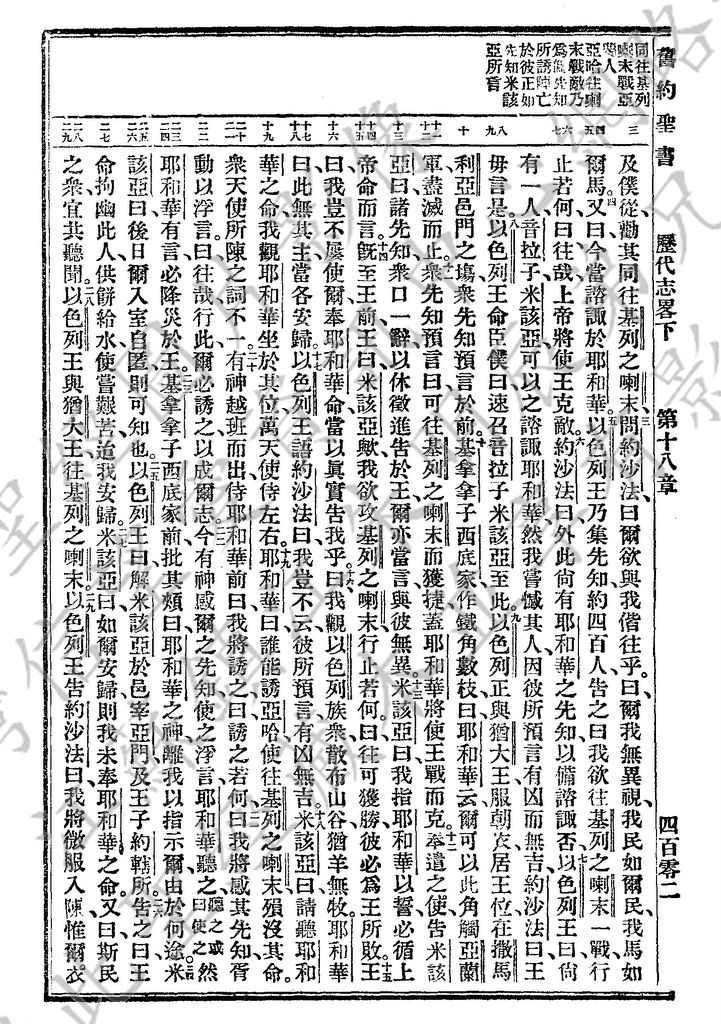 舊約聖書
歷代志畧下
第十八章
四百零二
同往基列
喇末戰亞
蘭人
亞哈往喇
末戰敵乃
爲僞先知
所誘陣亡
於彼正如
先知米該
亞所言
三
及僕從勸其同往基列之喇末三問約沙法曰爾欲與我偕往乎曰爾我無異視我民如爾民我馬如
四五
爾馬四又曰今當諮諏於耶和華五以色列王乃集先知約四百人告之曰我欲往基列之喇末一戰行
六七
止若何曰往哉上帝將使王克敵六約沙法曰外此尙有耶和華之先知以備諮諏否七以色列王曰尙
有一人音拉子米該亞可以之諮諏耶和華然我嘗憾其人因彼所預言有凶而無吉約沙法曰王
八九
毋言是八以色列王命臣僕曰速召音拉子米該亞至此九以色列王與猶大王服朝衣居王位在撒馬
十
利亞邑門之塲衆先知預言於前十基拿拿子西底家作鐵角數枝曰耶和華云爾可以此角觸亞蘭
十一十二
軍盡滅而止十一衆先知預言曰可往基列之喇末而獲捷蓋耶和華將使王戰而克十二奉遣之使告米該
十三
亞曰諸先知衆口一辭以休徵進告於王爾亦當言與彼無異十三米該亞曰我指耶和華以誓必循上
十四十五
帝命而言十四旣至王前王曰米該亞歟我欲攻基列之喇末行止若何曰往可獲勝彼必爲王所敗十五王
十六
曰我豈不屢使爾奉耶和華命當以眞實告我乎十六曰我觀以色列族衆散布山谷猶羊無牧耶和華
十七十八
曰此無其主當各安歸十七以色列王語約沙法曰我豈不云彼所預言有凶無吉十八米該亞曰請聽耶和
十九
華之命我觀耶和華坐於其位萬天使侍左右十九耶和華曰誰能誘亞哈使往基列之喇末殞沒其命
二十二一
衆天使所陳之詞不一二十有神越班而出侍耶和華前曰我將誘之曰誘之若何二一曰我將感其先知胥
二二
動以浮言曰往哉行此爾必誘之以成爾志二二今有神感爾之先知使之浮言耶和華聽之聽之或曰使之然
二三二四
耶和華有言必降災於王二三基拿拿子西底家前批其頰曰耶和華之神離我以指示爾由於何途二四米
二五二六
該亞曰後日爾入室自匿則可知也二五以色列王曰解米該亞於邑宰亞門及王子約轄所二六告之曰王
二七
命拘幽此人供餅給水使嘗艱苦迨我安歸二七米該亞曰如爾安歸則我未奉耶和華之命又曰斯民
二八二九
之衆宜其聽聞二八以色列王與猶大王往基列之喇末二九以色列王告約沙法曰我將微服入陳惟爾衣